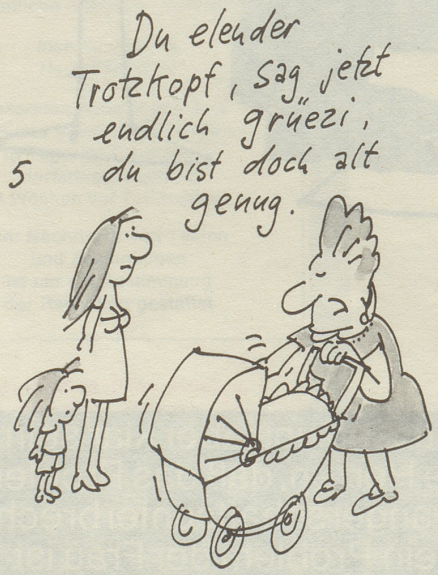 Du elender
Trotzkopf, sag jetzt
endlich grüezi,
5 du bist doch alt
genug.